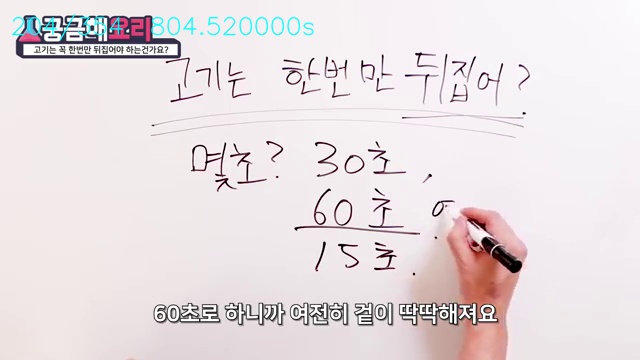 궁금해요리
고기는 꼭 한번만 뒤집어야 하는건가요?
고기는 한번만 뒤집어?
몇초? 30초,
60초
15초.
60초로 하니까 여전히 겉이 딱딱해져요